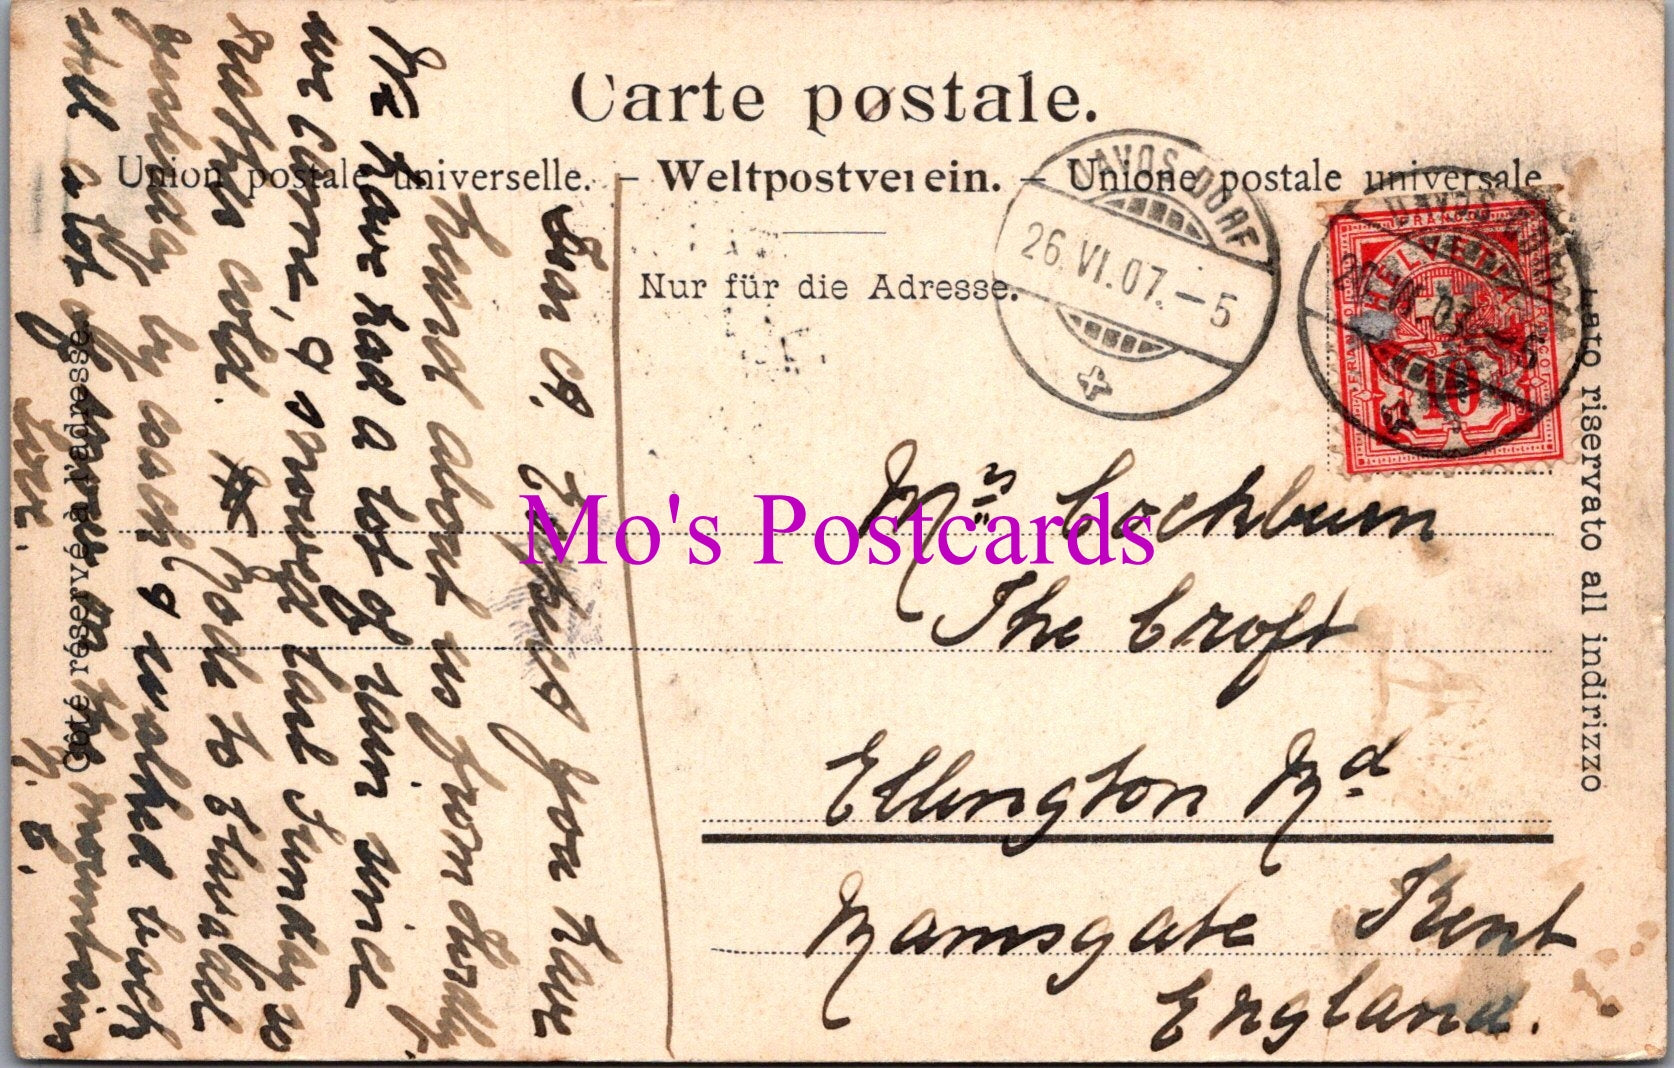 Carte postale.
Union postale universelle. – Weltpostverein. – Unione postale universale
Nur für die Adresse.
Côté réservé à l'adresse.
Lato riservato all indirizzo
DAVOS-DORF
26.VI.07.–5
DAVOS-DORF
FRANCO
HELVETIA
FRANCO
FRANCO
10
Mo's Postcards
Mrs Cockburn
The Croft
Ellington Rd
Ramsgate Kent
England.
Dear A. I expect you have
heard about us from
We have had a lot of rain since
we came, & snowed hard Sunday so
rather cold. Rode to
yesterday by coach & walked back
still a lot of snow on the mountains
Love.